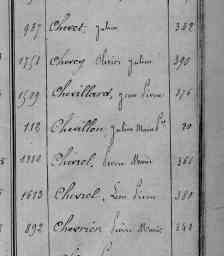 937 Chevet, Julien 382
1751 Chevey Olivier Julien 390
1509 Chevillard, Jean Pierre 376
118 Chevillon, Julien 20
Chevrel, Pierre Marie 366
1613 Chevrel, Pierre 381
892 Chevrier Pierre Marie 340